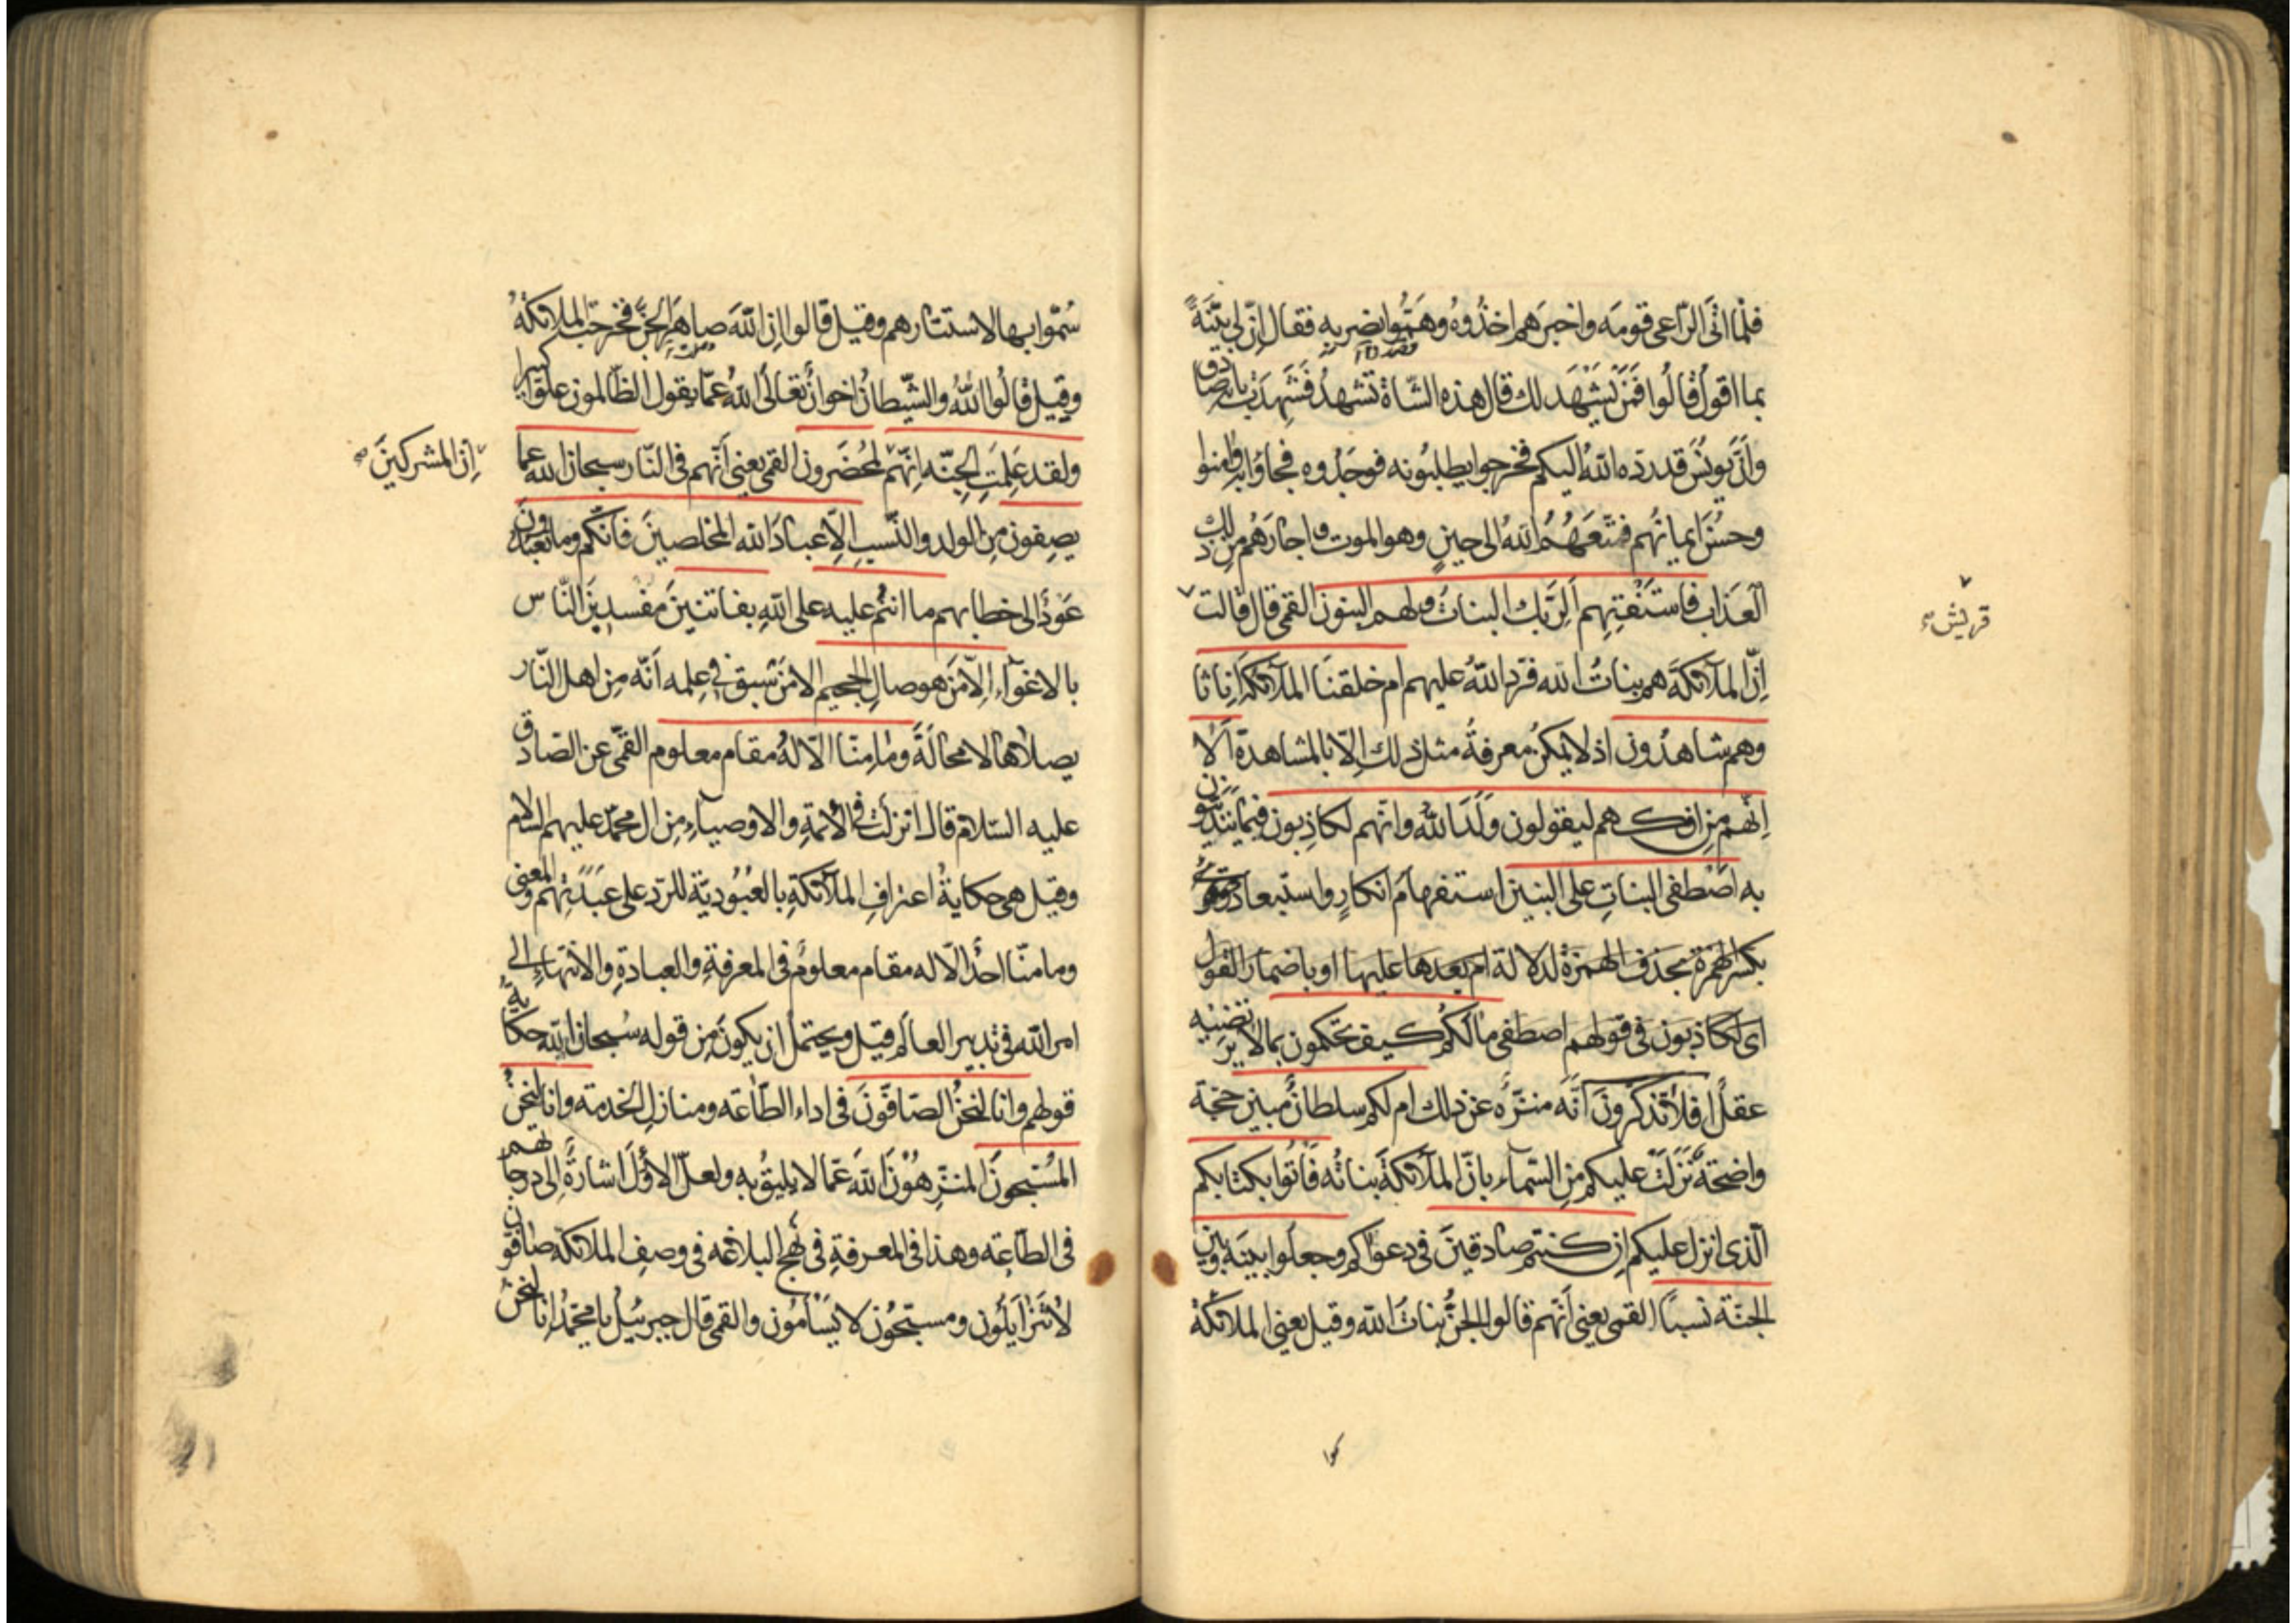 فلمّا اتَى الرّاعى قومَه واخبرَهم اخذُوهُ وهَمُّوا بضربِه فقال اِنّ لى بيّنَةً
بما اقولُ قالُوا فمَنْ يَشْهَد لك قال هذه الشّاة تَشهدُ فشَهِدَتْ بانّه صادق
وانَّ يونُسَ قد ردّه اللّهُ اليكم فخرجوا يطلبُونه فوجَدُوه فجاؤا به وامنوا
وحسُنَ ايمانُهم فمتّعَهُمُ اللّهُ الى حينٍ وهو الموت واجارَهُم من ذلك
العَذاب فاستَفْتِهِم اَلِرَبّك البناتُ ولهم البنون القمى قال قالت
قريش
اِنّ الملآئكةَ هم بناتُ اللّه فردّ اللّهُ عليهم ام خلقنَا الملآئكةَ اِناثا
وهم شاهدُون اذ لا يمكنُ معرفةُ مثل ذلك اِلّا بالمشاهدة اَلا
اِنّهم من افكهم ليقولون وَلَدَ اللّهُ وانّهم لكاذِبون فيما يتديّنون
به اَصْطفى البناتِ على البنين استفهام انكارٍ واستبعاد وقرئ
بكسر الهمزة بحذف الهمزة لدلالة ام بعدها عليها او باضمار القول
اى لكاذبون فى قولهم اصطفى مالكم كيف تحكمون بما لا يرتضيه
عقلٌ افلا تذكّرونَ اَنّه منزّهٌ عن ذلك ام لكم سلطانٌ مبين حجّة
واضحةٌ نزَلَتْ عليكم من السّماء بانّ الملآئكةَ بناتُه فَأتُوا بكتابكم
الّذى انزل عليكم اِن كنتم صادقينَ فى دعواكم وجعلوا بينَه وبين
الجنّة نسبًا القمى يعنى اَنّهم قالوا الجنُّ بناتُ اللّه وقيل يعنى الملائكة
سُمّوا بها لاستتارهم وقيل قالوا اِنّ اللّهَ صاهرَ الجنّ فخرجت الملائكةُ
وقيل قالُوا اللّهُ والشّيطانُ اخوانِ تعالَى اللّهُ عمّا يقول الظّالمون علوًّا كبيرا
ولقد عَلِمَتِ الجِنّه اِنّهم لمحُضَرون القمى يعنى اَنّهم فى النّار سبحان اللّه عما
اِنّ المشركينَ
يصِفون مِن الولد والنّسب اِلّا عبادَ اللّه المخلصينَ فانّكم وما تعبدون
عَودٌ الى خطابهم ما انتُم عليه على اللّهِ بفاتنينَ مفسدينَ النّاس
بالاغوآء اِلّا مَن هو صالِ الجحيم الا مَن سبق فى عِلمه اَنّه مِن اهل النّار
يصلاها لا محالَةَ وما مِنّا الّا لهُ مقام معلوم القمّى عن الصّادق
عليه السّلام قال انزلت فى الأئمّة والاوصياءِ من ال محمّد عليهم السلام
وقيل هى حكايةُ اعترافِ الملآئكةِ بالعُبُوديّة للردّ على عَبَدَتِهم والمعنى
وما منّا احدٌ الّا له مقام معلومٌ فى المعرفةِ والعبادةِ والانتهاءِ الى
امر اللّه فى تدبير العالم قيل ويحتمل ان يكونَ مِن قوله سُبحان اللّه حكاية
قولهم وانا لنحنُ الصّافّونَ فى اداء الطّاعَة ومنازل الخدمة وانا لنحنُ
المُسَبّحونَ المنزِّهُوْنَ اللّهَ عمّا لا يليقُ به ولعلّ الاوّلَ اشارةٌ اِلى درجاتهم
فى الطّاعِة وهذا فى المعرفةِ فى نهج البلاغه فى وصف الملائكة صافّون
لا يَتَزايَلُون ومسبّحُون لا يَسْأمُون والقمى قال جبرئيلُ يا محمّدُ انا لنحن